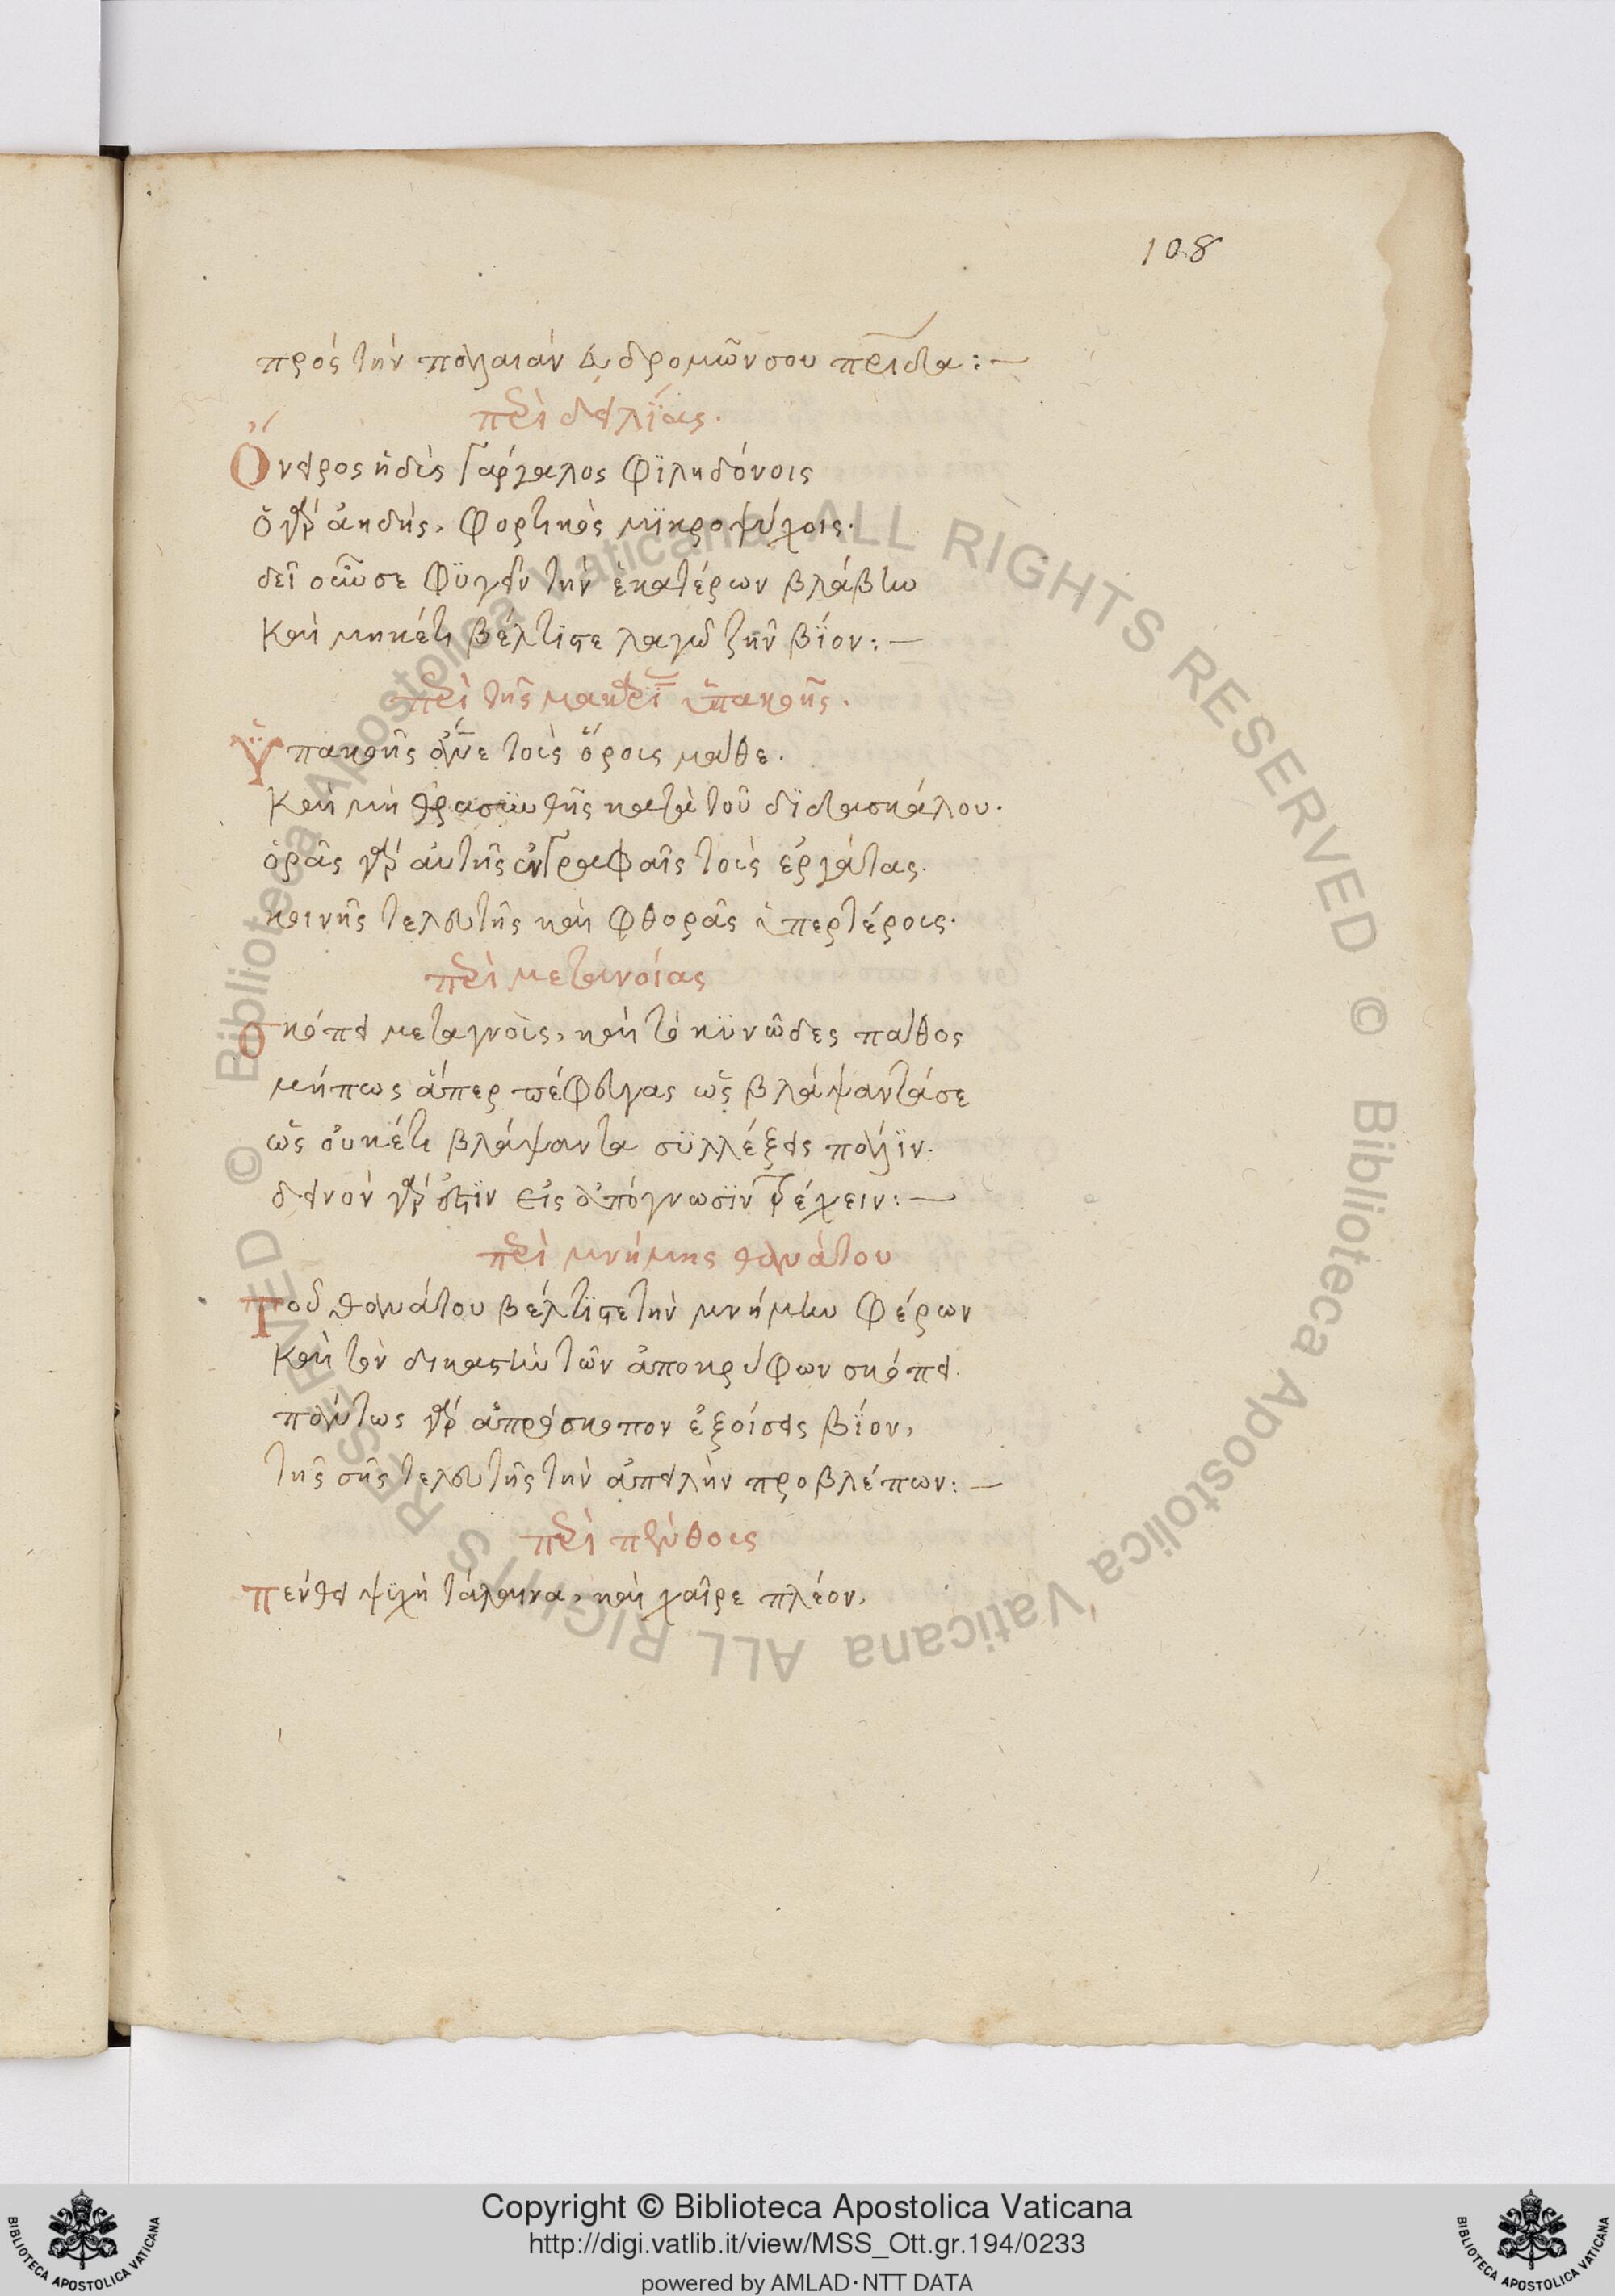 108
πρὸς τὴν παλαιὰν εὐδρομῶν σου πατρίδα:—
περὶ δειλίας.
Ὄνειρος ἡδὺς γάργαλος φιληδόνοις
ὁ γὰρ ἀηδὴς, φορτικὸς μικροψύχοις.
δεῖ οὖν σε φυγεῖν τὴν ἑκατέρων βλάβην
καὶ μηκέτι βέλτιστε λαγῶ ζῆν βίον:—
περὶ τῆς μακαρίας ὑπακοῆς.
Ὑπακοῆς ἄνθρωπε τοὺς ὅρους μάθε.
καὶ μὴ θρασυνθῇς κατὰ τοῦ διδασκάλου.
ὁρᾶς γὰρ αὐτῆς ἐν γραφαῖς τοὺς ἐργάτας.
κοινῆς τελευτῆς καὶ φθορᾶς ὑπερτέρους.
περὶ μετανοίας
σκόπει μεταγνοὺς, καὶ τὸ κυνῶδες πάθος
μήπως ἅπερ πέφευγας ὡς βλάψαντά σε
ὡς οὐκέτι βλάψοντα συλλέξεις πάλιν.
δεινὸν γάρ ἐστιν εἰς ἀπόγνωσιν τρέχειν:—
περὶ μνήμης θανάτου
τοῦ θανάτου βέλτιστε τὴν μνήμην φέρων
καὶ τὸν δικαστὴν τῶν ἀποκρύφων σκόπει.
πάντως γὰρ ἀπρόσκοπον ἐξοίσεις βίον,
τῆς σῆς τελευτῆς τὴν ἀπειλὴν προβλέπων:—
περὶ πένθους
πένθει ψυχὴ τάλαινα, καὶ χαῖρε πλέον,
© Biblioteca Apostolica Vaticana ALL RIGHTS RESERVED © Biblioteca Apostolica Vaticana ALL RIGHTS RESERVED
Copyright © Biblioteca Apostolica Vaticana
http://digi.vatlib.it/view/MSS_Ott.gr.194/0233
powered by AMLAD·NTT DATA
BIBLIOTECA APOSTOLICA VATICANA
BIBLIOTECA APOSTOLICA VATICANA